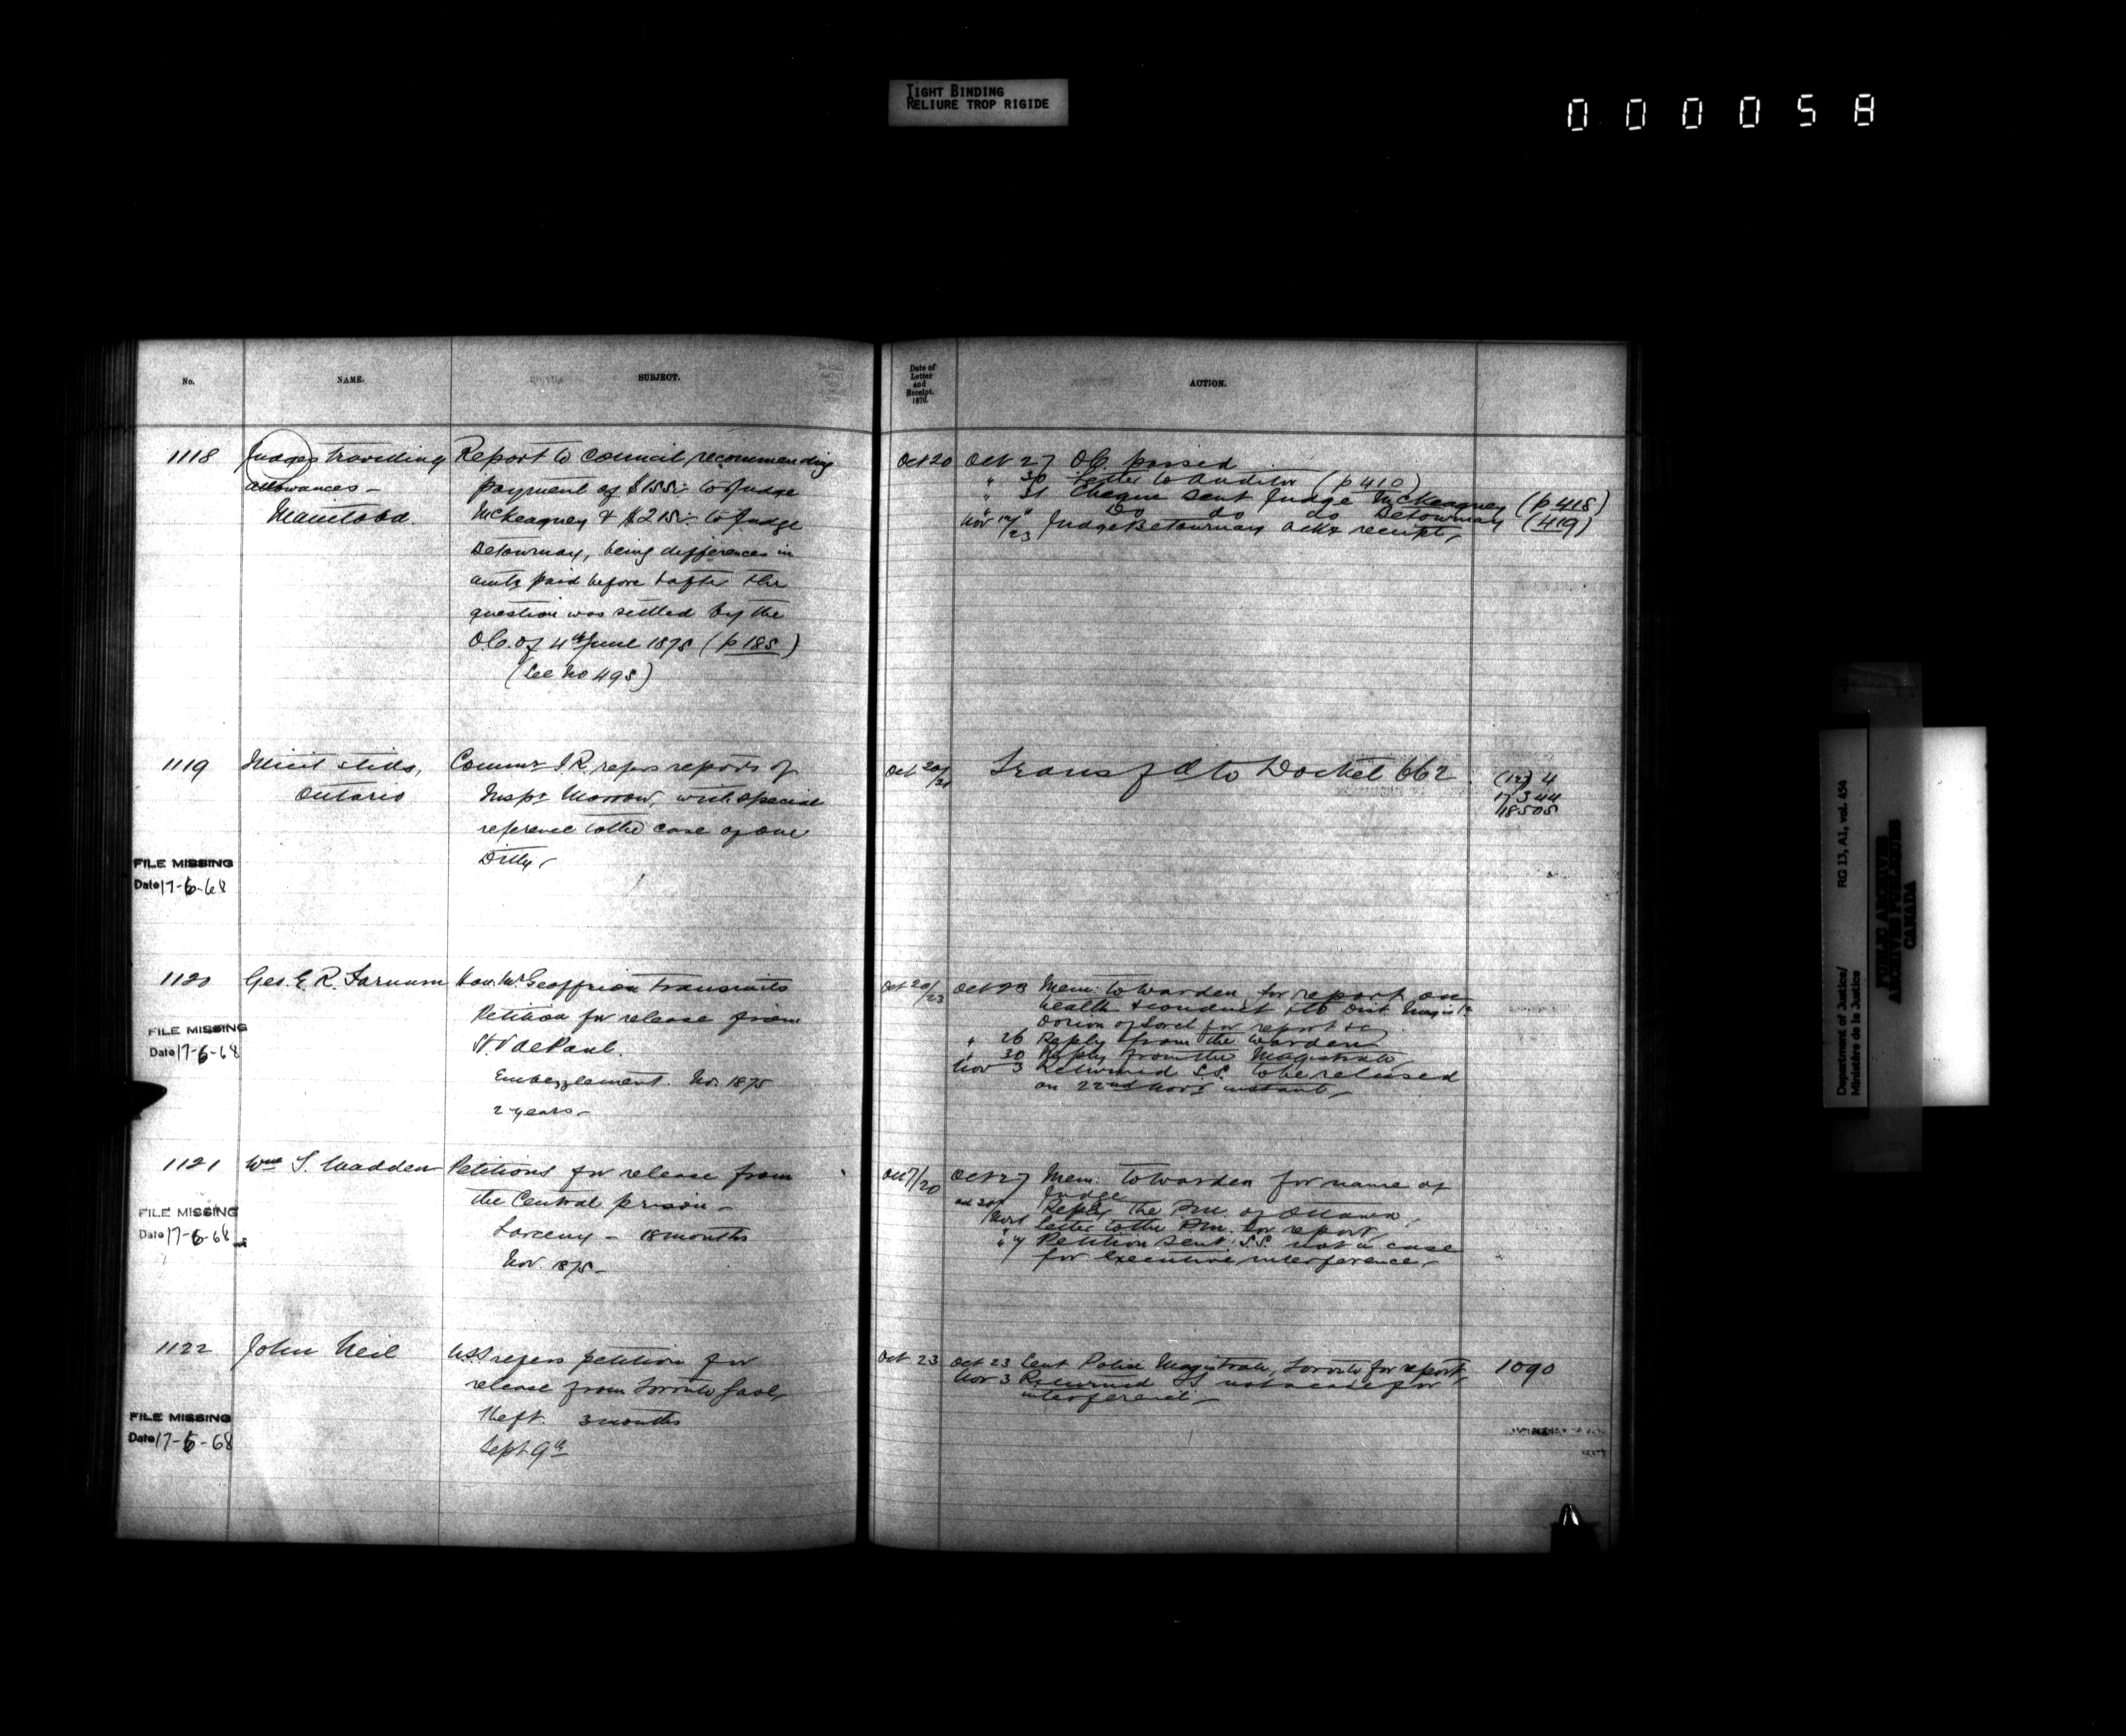 TIGHT BINDING
RELIURE TROP RIGIDE
000058
No.
NAME.
SUBJECT.
Date of
Letter
and
Receipt.
1876.
ACTION.
1118
Judges travelling
allowances -
Manitoba.
Report to Council, recommending
payment of $155 to Judge
McKeagney & $215 to Judge
Betournay, being differences in
amts paid before & after the
question was settled by the
O.C. of 4th June 1875 (p 185)
(See No 495)
Oct 20
Oct 27 O.C. passed
" 30 Letter to Auditor (p 410)
" 31 Cheque sent Judge McKeagney (p 418)
" " Do do do Betournay (419)
Nov 14/23 Judge Betournay ackg receipt,
1119
Illicit stills,
Ontario
Commr I.R. refers reports of
Inspr Morrow, with special
reference to the case of one
Dilly,
Oct 20/21
Transfd to Docket 662
(12) 4
17344
18505
FILE MISSING
Date 17-6-68
1120
Geo. E. R. Farnum
Hon. Mr Geoffrion transmits
Petition for release from
St. V. de Paul.
Embezzlement. Nov. 1875
2 years -
Oct 20/23
Oct 23 Mem: to Warden for report on
health & conduct & to Dist. Magist.
Dorion of Sorel for report &c
" 26 Reply from the Warden
" 30 Reply from the Magistrate
Nov 3 Returned S.S. to be released
on 22nd Novr instant,
FILE MISSING
Date 17-6-68
1121
Wm S. Madden
Petitions for release from
the Central prison -
Larceny - 18 months
Nov. 1875 -
Oct 7/20
Oct 27 Mem. to Warden for name of
Judge
Reply the P.M. of Ottawa,
Nov 1 Letter to the P.M. for report,
Petition sent S.S. not a case
for executive interference,
FILE MISSING
Date 17-6-68
1122
John Neil
U.S.S refers petition for
release from Toronto Gaol,
Theft. 3 months
Sept 9th
Oct 23
Oct 23 Sent Police Magistrate, Toronto for report,
Nov 3 Returned SS not a case for
interference -
1090
FILE MISSING
Date 17-6-68
Department of Justice/
Ministère de la Justice
RG 13, A1, vol. 454
PUBLIC ARCHIVES
ARCHIVES PUBLIQUES
CANADA